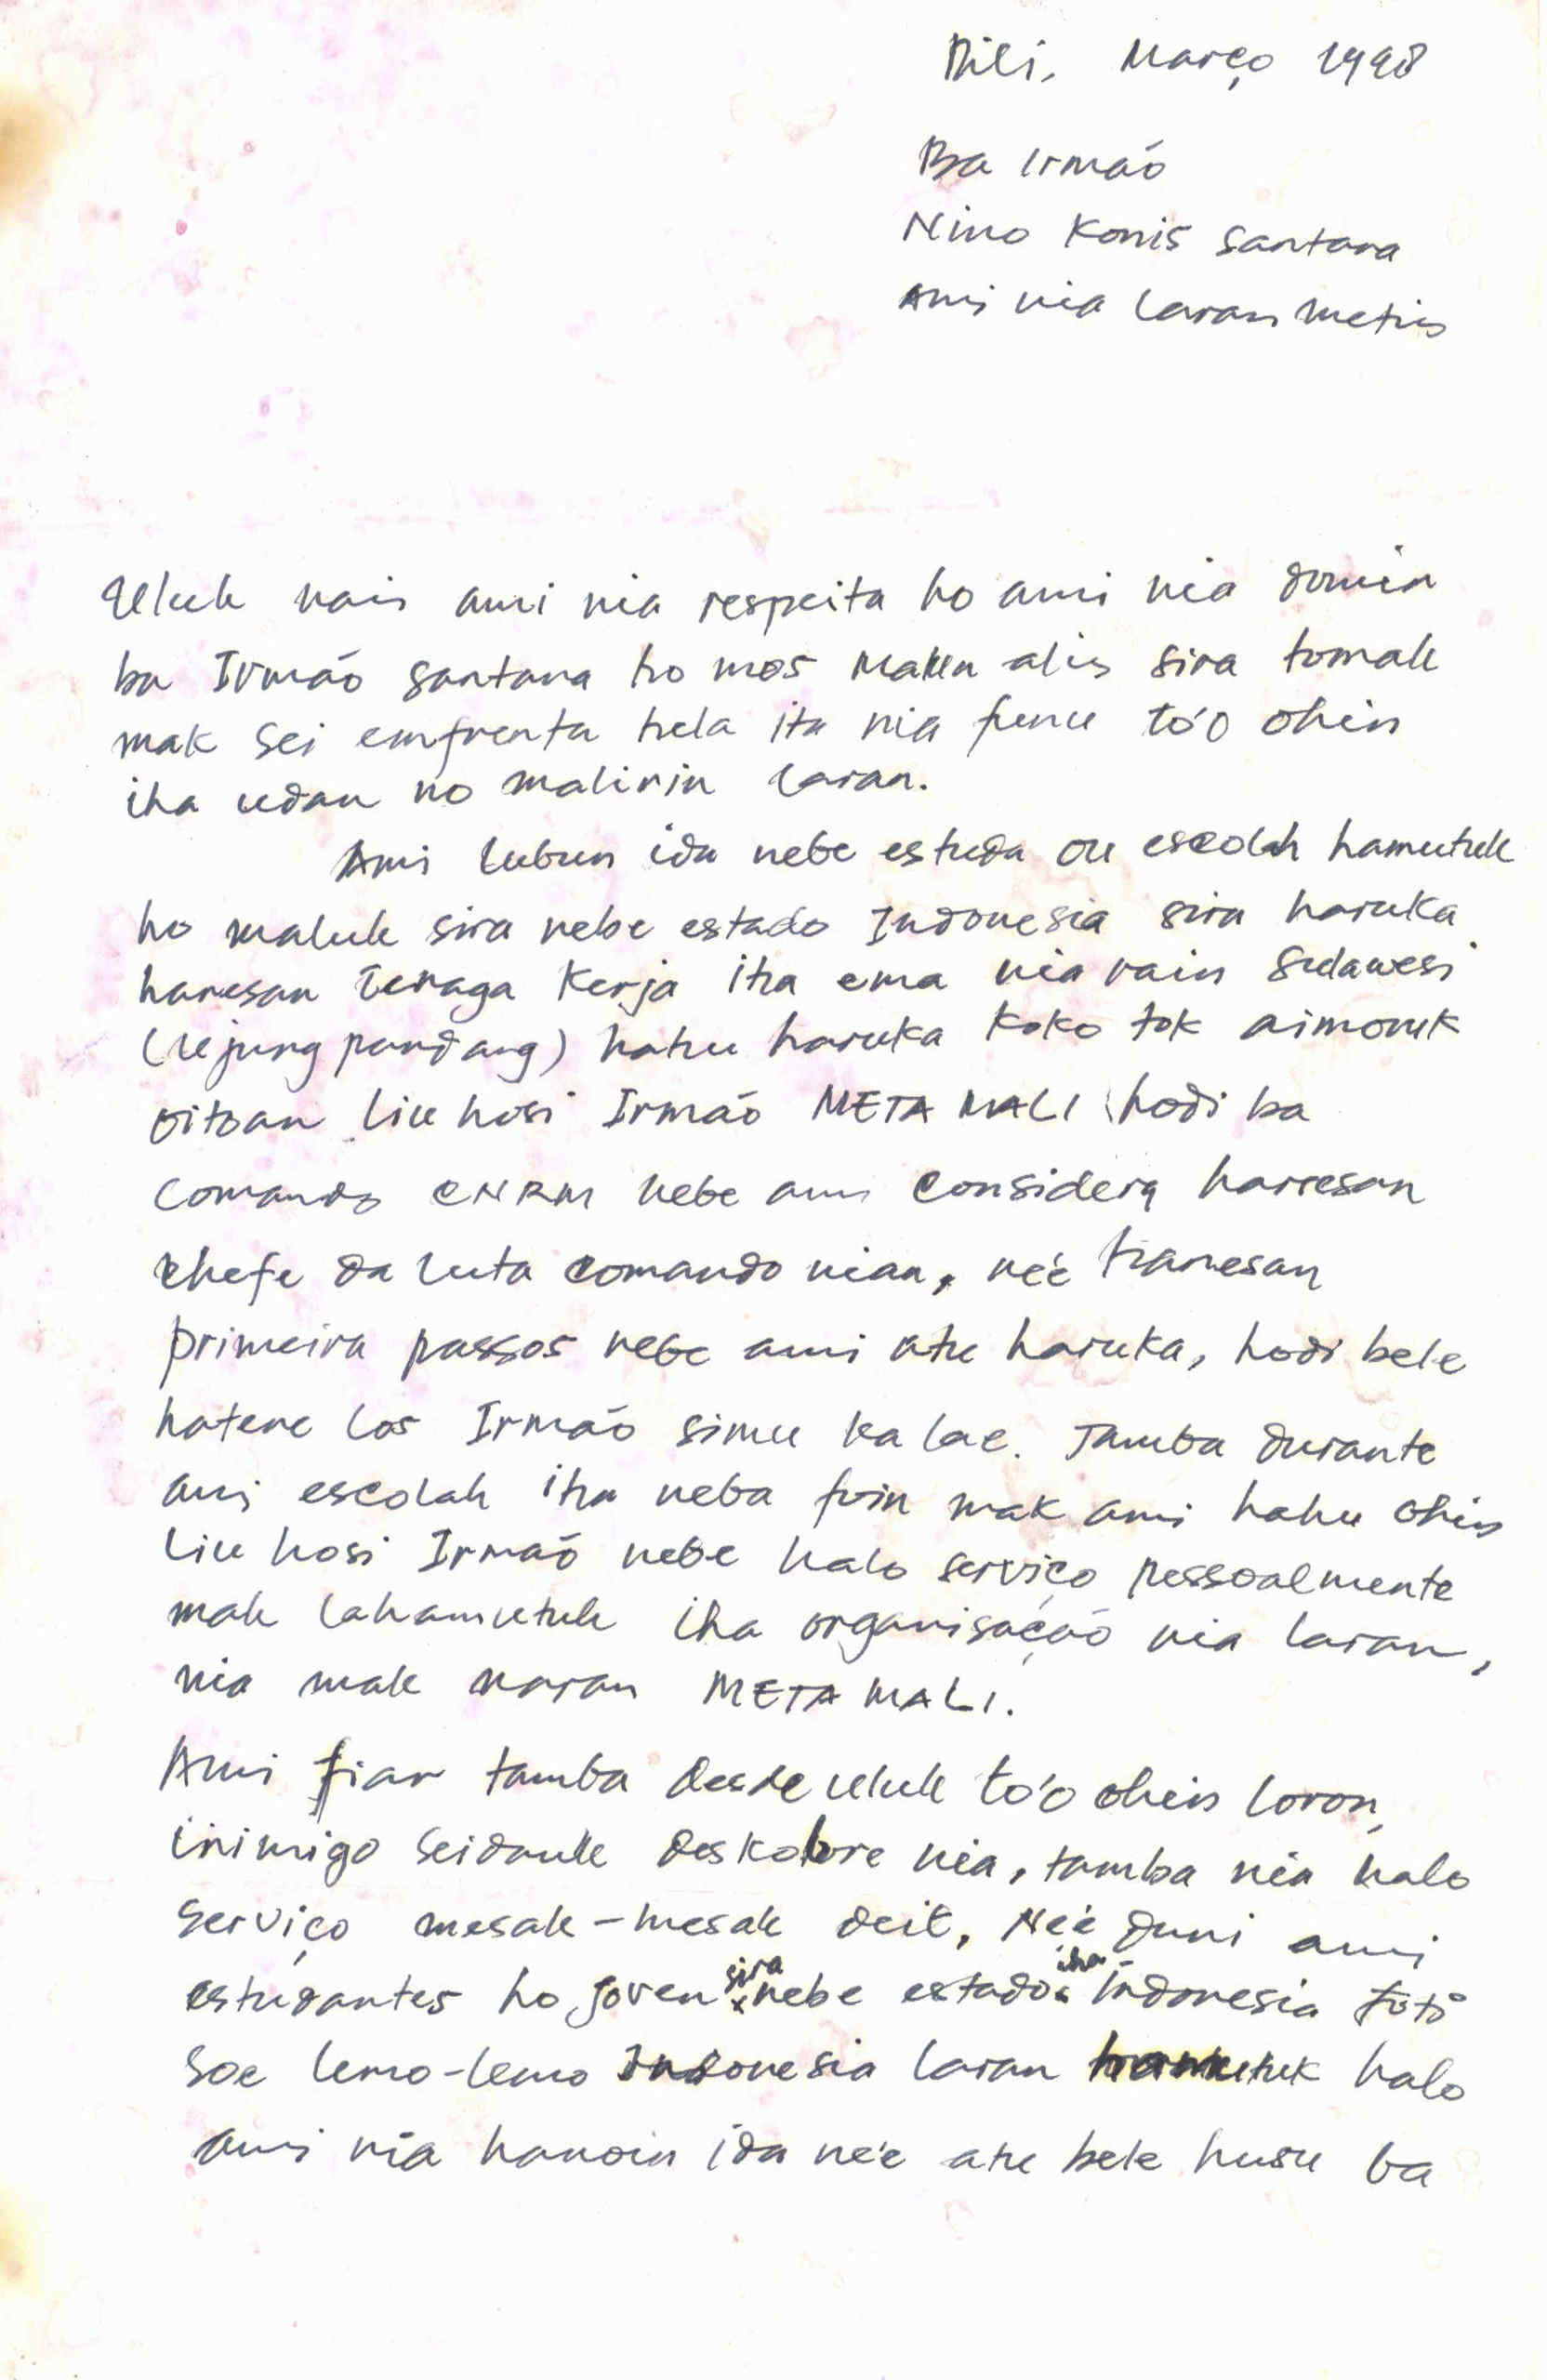 Dili, Março 1998
Ba Irmão
Nino Konis Santana
Ami nia laran metin
Uluk nain ami nia respeita ho ami nia domin
ba Irmão Santana ho mos maun alin sira tomak
mak sei emfrenta hela ita nia funu to'o ohin
iha udan no malirin laran.
Ami lubun ida nebe estuda ou escolah hamutuk
ho maluk sira nebe estado Indonesia sira haruka
hanesan tenaga kerja iha ema nia rain Sulawesi
(Ujung pandang) hahu haruka koko tok aimoruk
oitoan liu hosi Irmão META MALI hodi ba
comando CNRM nebe ami considera hanesan
chefe da luta comando nian, ne'e hanesan
primeira passos nebe ami atu haruka, hodi bele
hatene los Irmão simu ka lae. Tamba durante
ami escolah iha neba foin mak ami hahu ohin
liu hosi Irmão nebe halo serviço pessoalmente
mak lahamutuk iha organisação nia laran,
nia mak naran META MALI.
Ami fiar tamba desde uluk to'o ohin loron,
inimigo seidauk deskobre nia, tamba nia halo
serviço mesak-mesak deit, Ne'e duni ami
estudantes ho joven sira nebe estado iha Indonesia foti
soe lemo-lemo Indonesia laran hamutuk halo
ami nia hanoin ida ne'e atu bele husu ba